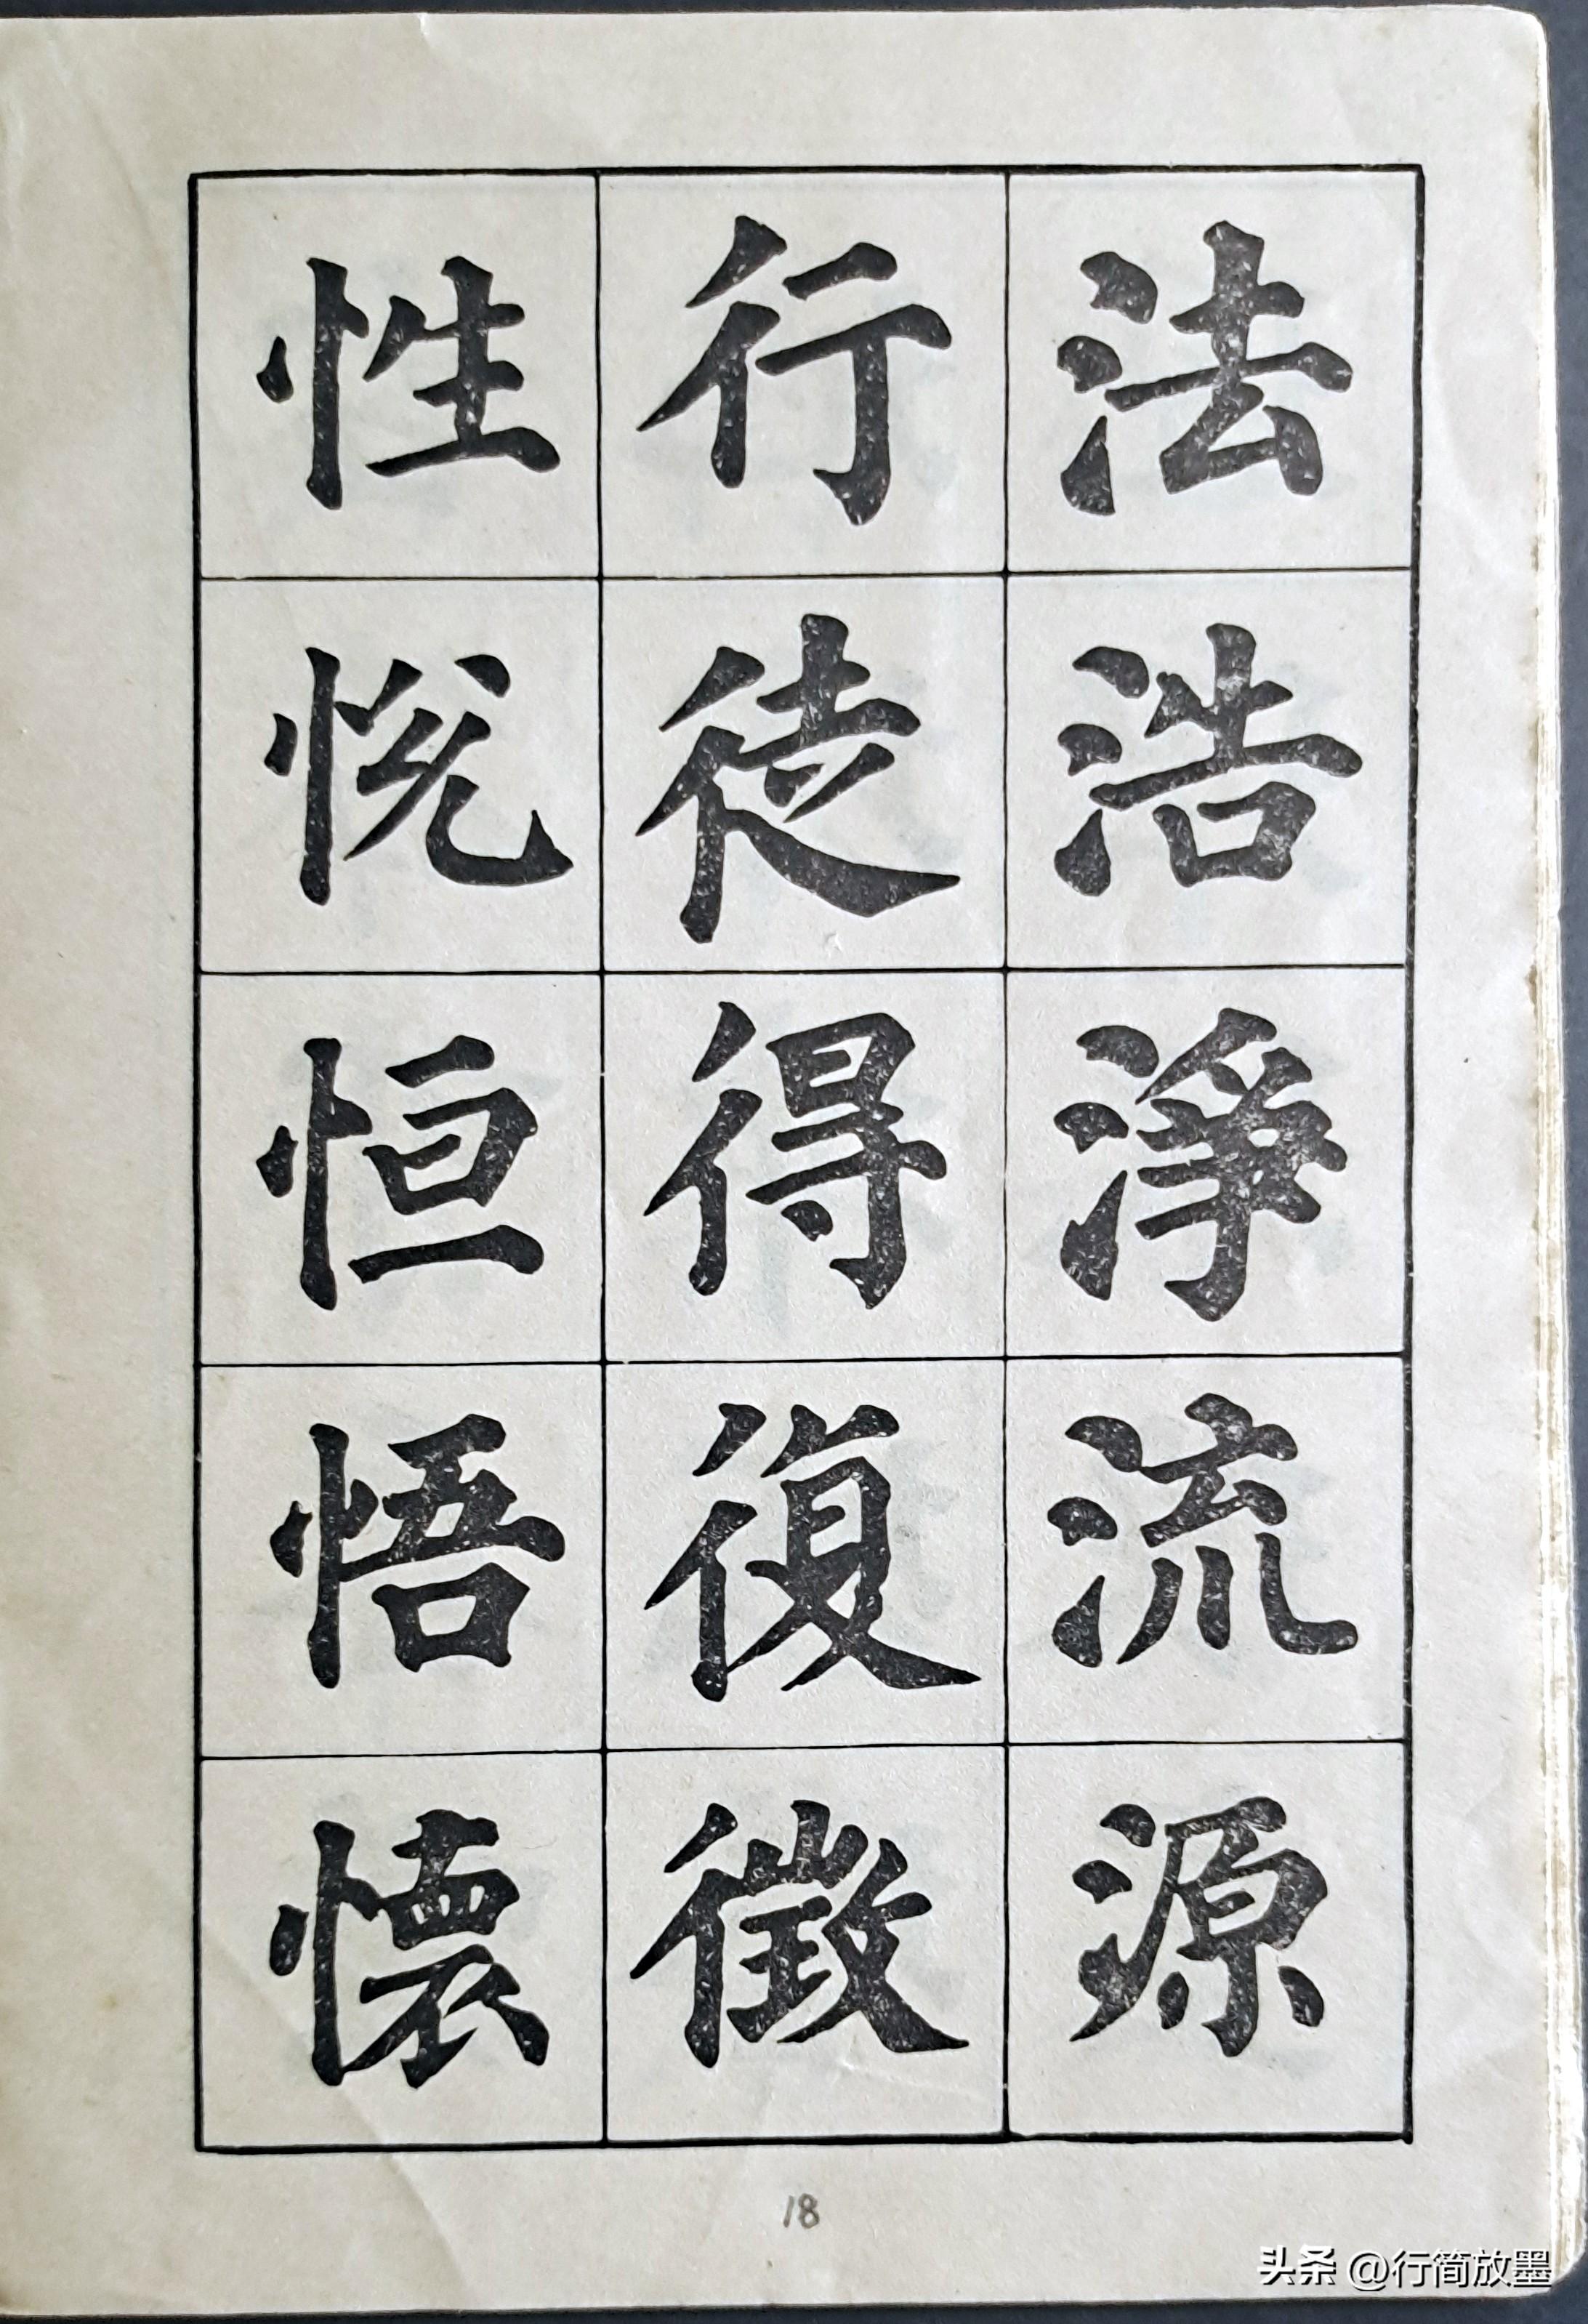 法浩淨流源
行徒得復徵
性悅恒悟懷
18
头条 @行简放墨